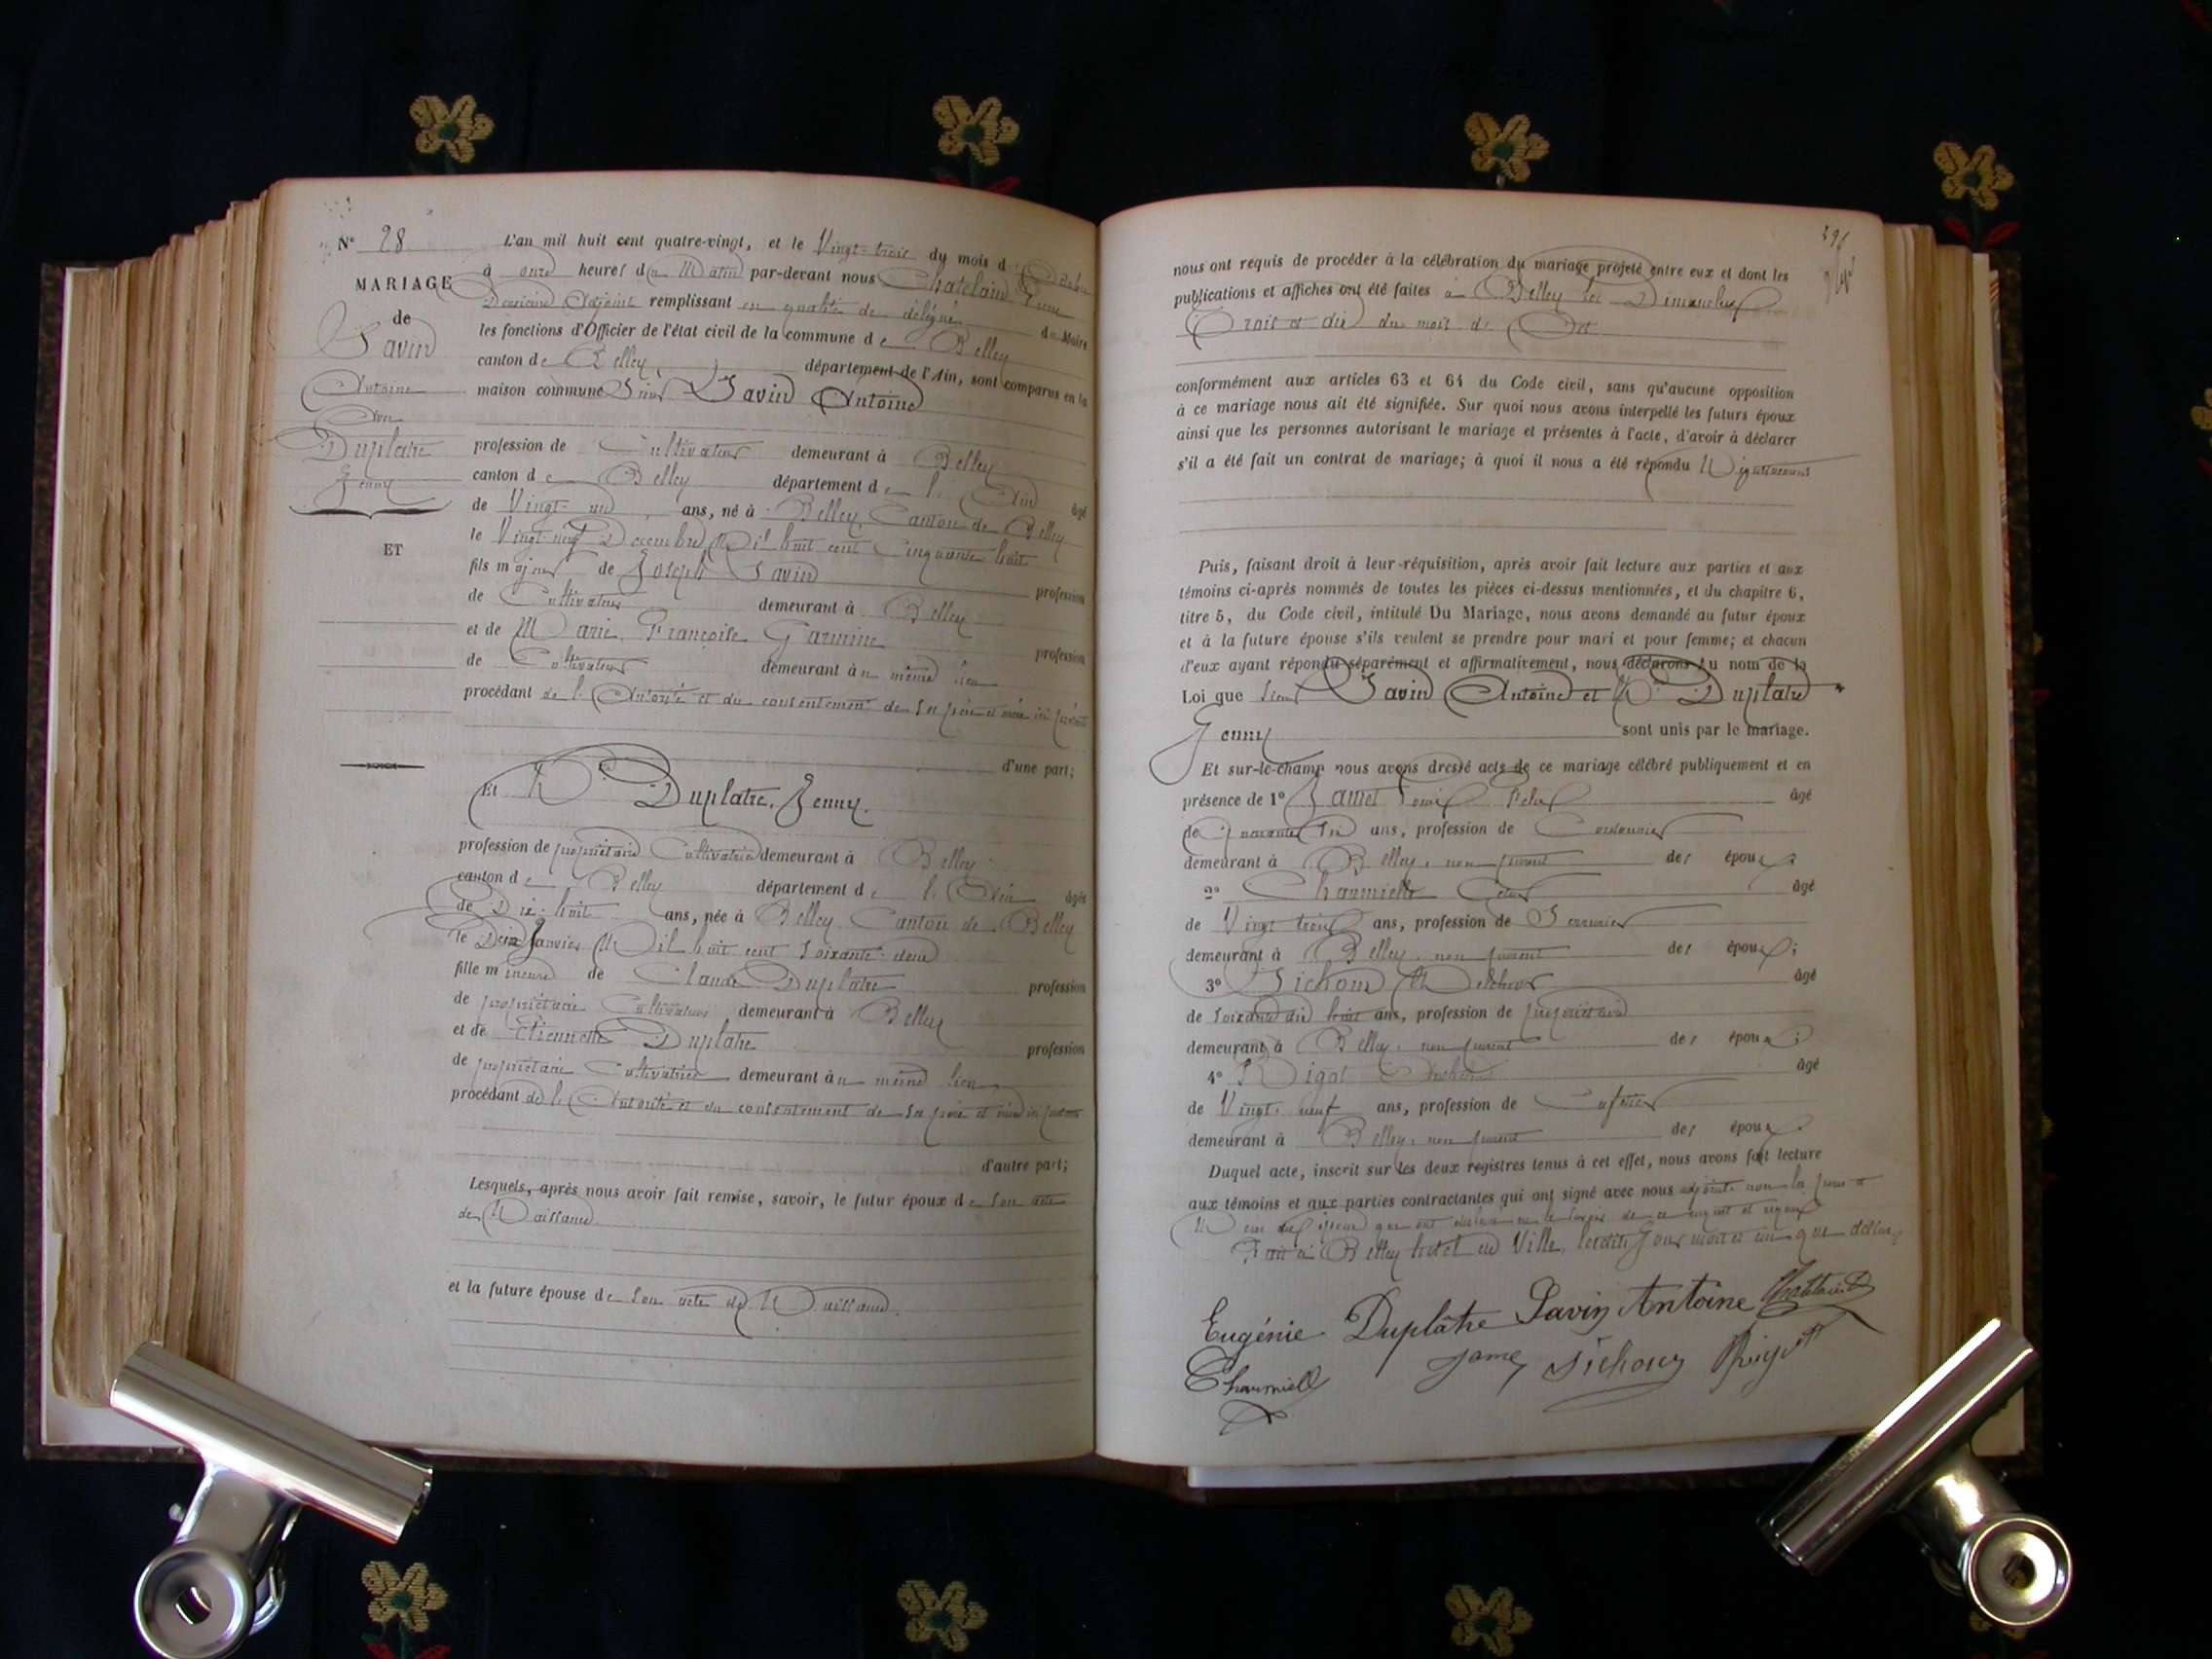 N° 28
MARIAGE
de
Savin
Antoine
Avec
Duplatre
Jenny
ET
L'an mil huit cent quatre-vingt, et le Vingt-trois du mois d'Octobre
à onze heures du Matin par-devant nous Chatelain
Deuxième Adjoint remplissant en qualité de délégué du Maire
les fonctions d'Officier de l'état civil de la commune de Belley
canton de Belley, département de l'Ain, sont comparus en la
maison commune Sieur Savin Antoine
profession de Cultivateur demeurant à Belley
canton de Belley département de l'Ain âgé
de Vingt-un ans, né à Belley, Canton de Belley
le Vingt-neuf Décembre Mil huit cent Cinquante huit
fils majeur de Joseph Savin profession
de Cultivateur demeurant à Belley
et de Marie Françoise profession
de demeurant au même lieu
procédant de l'Autorité et du consentement de ses père et mère ici présents
d'une part;
Et Duplatre, Jenny.
profession de propriétaire Cultivatrice demeurant à Belley
canton de Belley département de l'Ain âgée
de Dix-huit ans, née à Belley Canton de Belley
le Janvier Mil huit cent soixante-deux
fille mineure de Claude Duplatre profession
de propriétaire Cultivateur demeurant à Belley
et de Etiennette Duplatre profession
de propriétaire Cultivatrice demeurant au même lieu
procédant de l'Autorité et du consentement de ses père et mère ici présents
d'autre part;
Lesquels, après nous avoir fait remise, savoir, le futur époux de son acte
de Naissance.
et la future épouse de son acte de Naissance.
296
nous ont requis de procéder à la célébration du mariage projeté entre eux et dont les
publications et affiches ont été faites à Belley les Dimanches
Trois et dix du mois de Oct
conformément aux articles 63 et 64 du Code civil, sans qu'aucune opposition
à ce mariage nous ait été signifiée. Sur quoi nous avons interpellé les futurs époux
ainsi que les personnes autorisant le mariage et présentes à l'acte, d'avoir à déclarer
s'il a été fait un contrat de mariage; à quoi il nous a été répondu Négativement
Puis, faisant droit à leur réquisition, après avoir fait lecture aux parties et aux
témoins ci-après nommés de toutes les pièces ci-dessus mentionnées, et du chapitre 6,
titre 5, du Code civil, intitulé Du Mariage, nous avons demandé au futur époux
et à la future épouse s'ils veulent se prendre pour mari et pour femme; et chacun
d'eux ayant répondu séparément et affirmativement, nous déclarons au nom de la
Loi que Sieur Savin Antoine et Duplatre
Jenny sont unis par le mariage.
Et sur-le-champ nous avons dressé acte de ce mariage célébré publiquement et en
présence de 1° Louis âgé
de quarante ans, profession de Cordonnier
demeurant à Belley, non parent des époux;
2° âgé
de Vingt trois ans, profession de Serrurier
demeurant à Belley, non parent des époux;
3° Sichoux âgé
de soixante dix huit ans, profession de propriétaire
demeurant à Belley, non parent des époux;
4° Rigot âgé
de Vingt-neuf ans, profession de Cafetier
demeurant à Belley, non parent des époux.
Duquel acte, inscrit sur les deux registres tenus à cet effet, nous avons fait lecture
aux témoins et aux parties contractantes qui ont signé avec nous adjoint, non les pères et
Mères des époux qui ont déclaré ne le savoir de ce enquis et requis
Fait à Belley hôtel de Ville, lesdits Jour mois et an que dessus
Eugénie Duplâtre Savin Antoine Chatelain
Charmiell Jame Sichoux Rigot